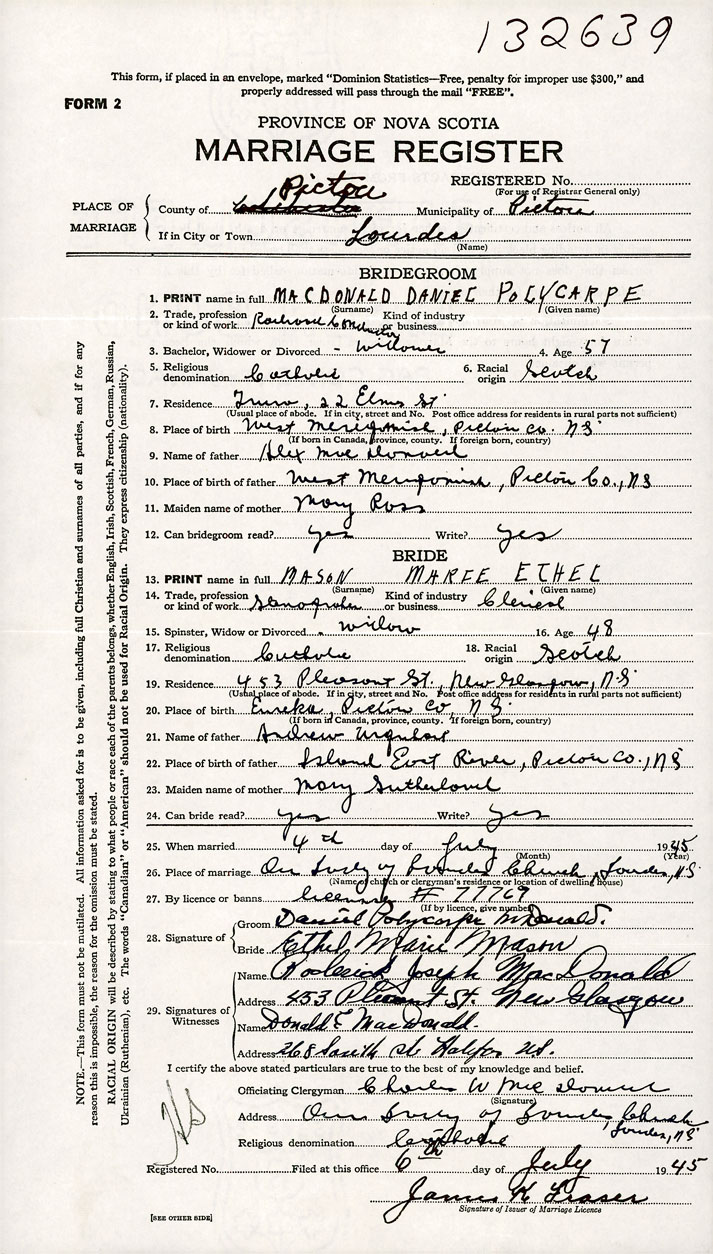 132639
This form, if placed in an envelope, marked "Dominion Statistics—Free, penalty for improper use $300," and
properly addressed will pass through the mail "FREE".
FORM 2
PROVINCE OF NOVA SCOTIA
MARRIAGE REGISTER
REGISTERED No.
(For use of Registrar General only)
PLACE OF MARRIAGE
County of Pictou Municipality of Pictou
If in City or Town Lourdes
(Name)
BRIDEGROOM
1. PRINT name in full MACDONALD DANIEL POLYCARPE
(Surname) (Given name)
2. Trade, profession or kind of work Railroad Conductor Kind of industry or business
3. Bachelor, Widower or Divorced - Widower 4. Age 57
5. Religious denomination Catholic 6. Racial origin Scotch
7. Residence Truro, 22 Elms St.
(Usual place of abode. If in city, street and No. Post office address for residents in rural parts not sufficient)
8. Place of birth West Merigomish, Pictou Co. NS
(If born in Canada, province, county. If foreign born, country)
9. Name of father Alex MacDonald
10. Place of birth of father West Merigomish, Pictou Co., NS
11. Maiden name of mother Mary Ross
12. Can bridegroom read? yes Write? yes
BRIDE
13. PRINT name in full MASON MARIE ETHEL
(Surname) (Given name)
14. Trade, profession or kind of work Kind of industry or business Clerical
15. Spinster, Widow or Divorced - widow 16. Age 48
17. Religious denomination Catholic 18. Racial origin Scotch
19. Residence 453 Pleasant St., New Glasgow, N.S.
(Usual place of abode. If in city, street and No. Post office address for residents in rural parts not sufficient)
20. Place of birth Eureka, Pictou Co, N.S.
(If born in Canada, province, county. If foreign born, country)
21. Name of father Andrew Urquhart
22. Place of birth of father Island East River, Pictou Co., NS
23. Maiden name of mother Mary Sutherland
24. Can bride read? yes Write? yes
25. When married 4th day of July 1945
(Month) (Year)
26. Place of marriage Our Lady of Lourdes Church, Lourdes, NS
(Name of church or clergyman's residence or location of dwelling house)
27. By licence or banns license # 77769
(If by licence, give number)
28. Signature of
Groom Daniel Polycarpe McDonald.
Bride Ethel Marie Mason
29. Signatures of Witnesses
Name Roderick Joseph MacDonald
Address 453 Pleasant St. New Glasgow
Name Donald E MacDonald.
Address 268 South St Halifax NS.
I certify the above stated particulars are true to the best of my knowledge and belief.
Officiating Clergyman Charles W MacDonald
(Signature)
Address Our Lady of Lourdes Church
Lourdes, NS
Religious denomination Catholic
Registered No. Filed at this office 6th day of July 1945
James K Fraser
Signature of Issuer of Marriage Licence
[SEE OTHER SIDE]
NOTE.—This form must not be mutilated. All information asked for is to be given, including full Christian and surnames of all parties, and if for any
reason this is impossible, the reason for the omission must be stated.
RACIAL ORIGIN will be described by stating to what people or race each of the parents belongs, whether English, Irish, Scottish, French, German, Russian,
Ukrainian (Ruthenian), etc. The words "Canadian" or "American" should not be used for Racial Origin. They express citizenship (nationality).